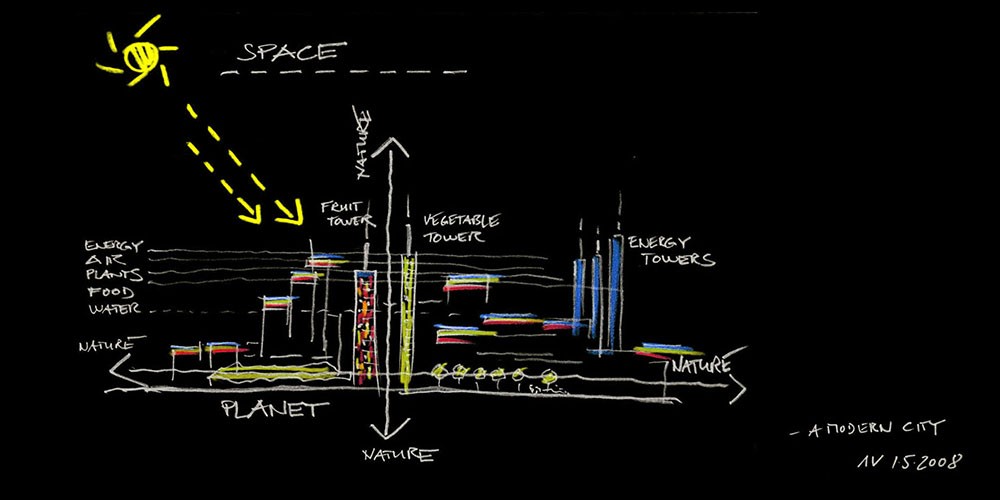 SPACE
NATURE
FRUIT
TOWER
VEGETABLE
TOWER
ENERGY
TOWERS
ENERGY
AIR
PLANTS
FOOD
WATER
NATURE
NATURE
PLANET
NATURE
- A MODERN CITY
1.5.2008